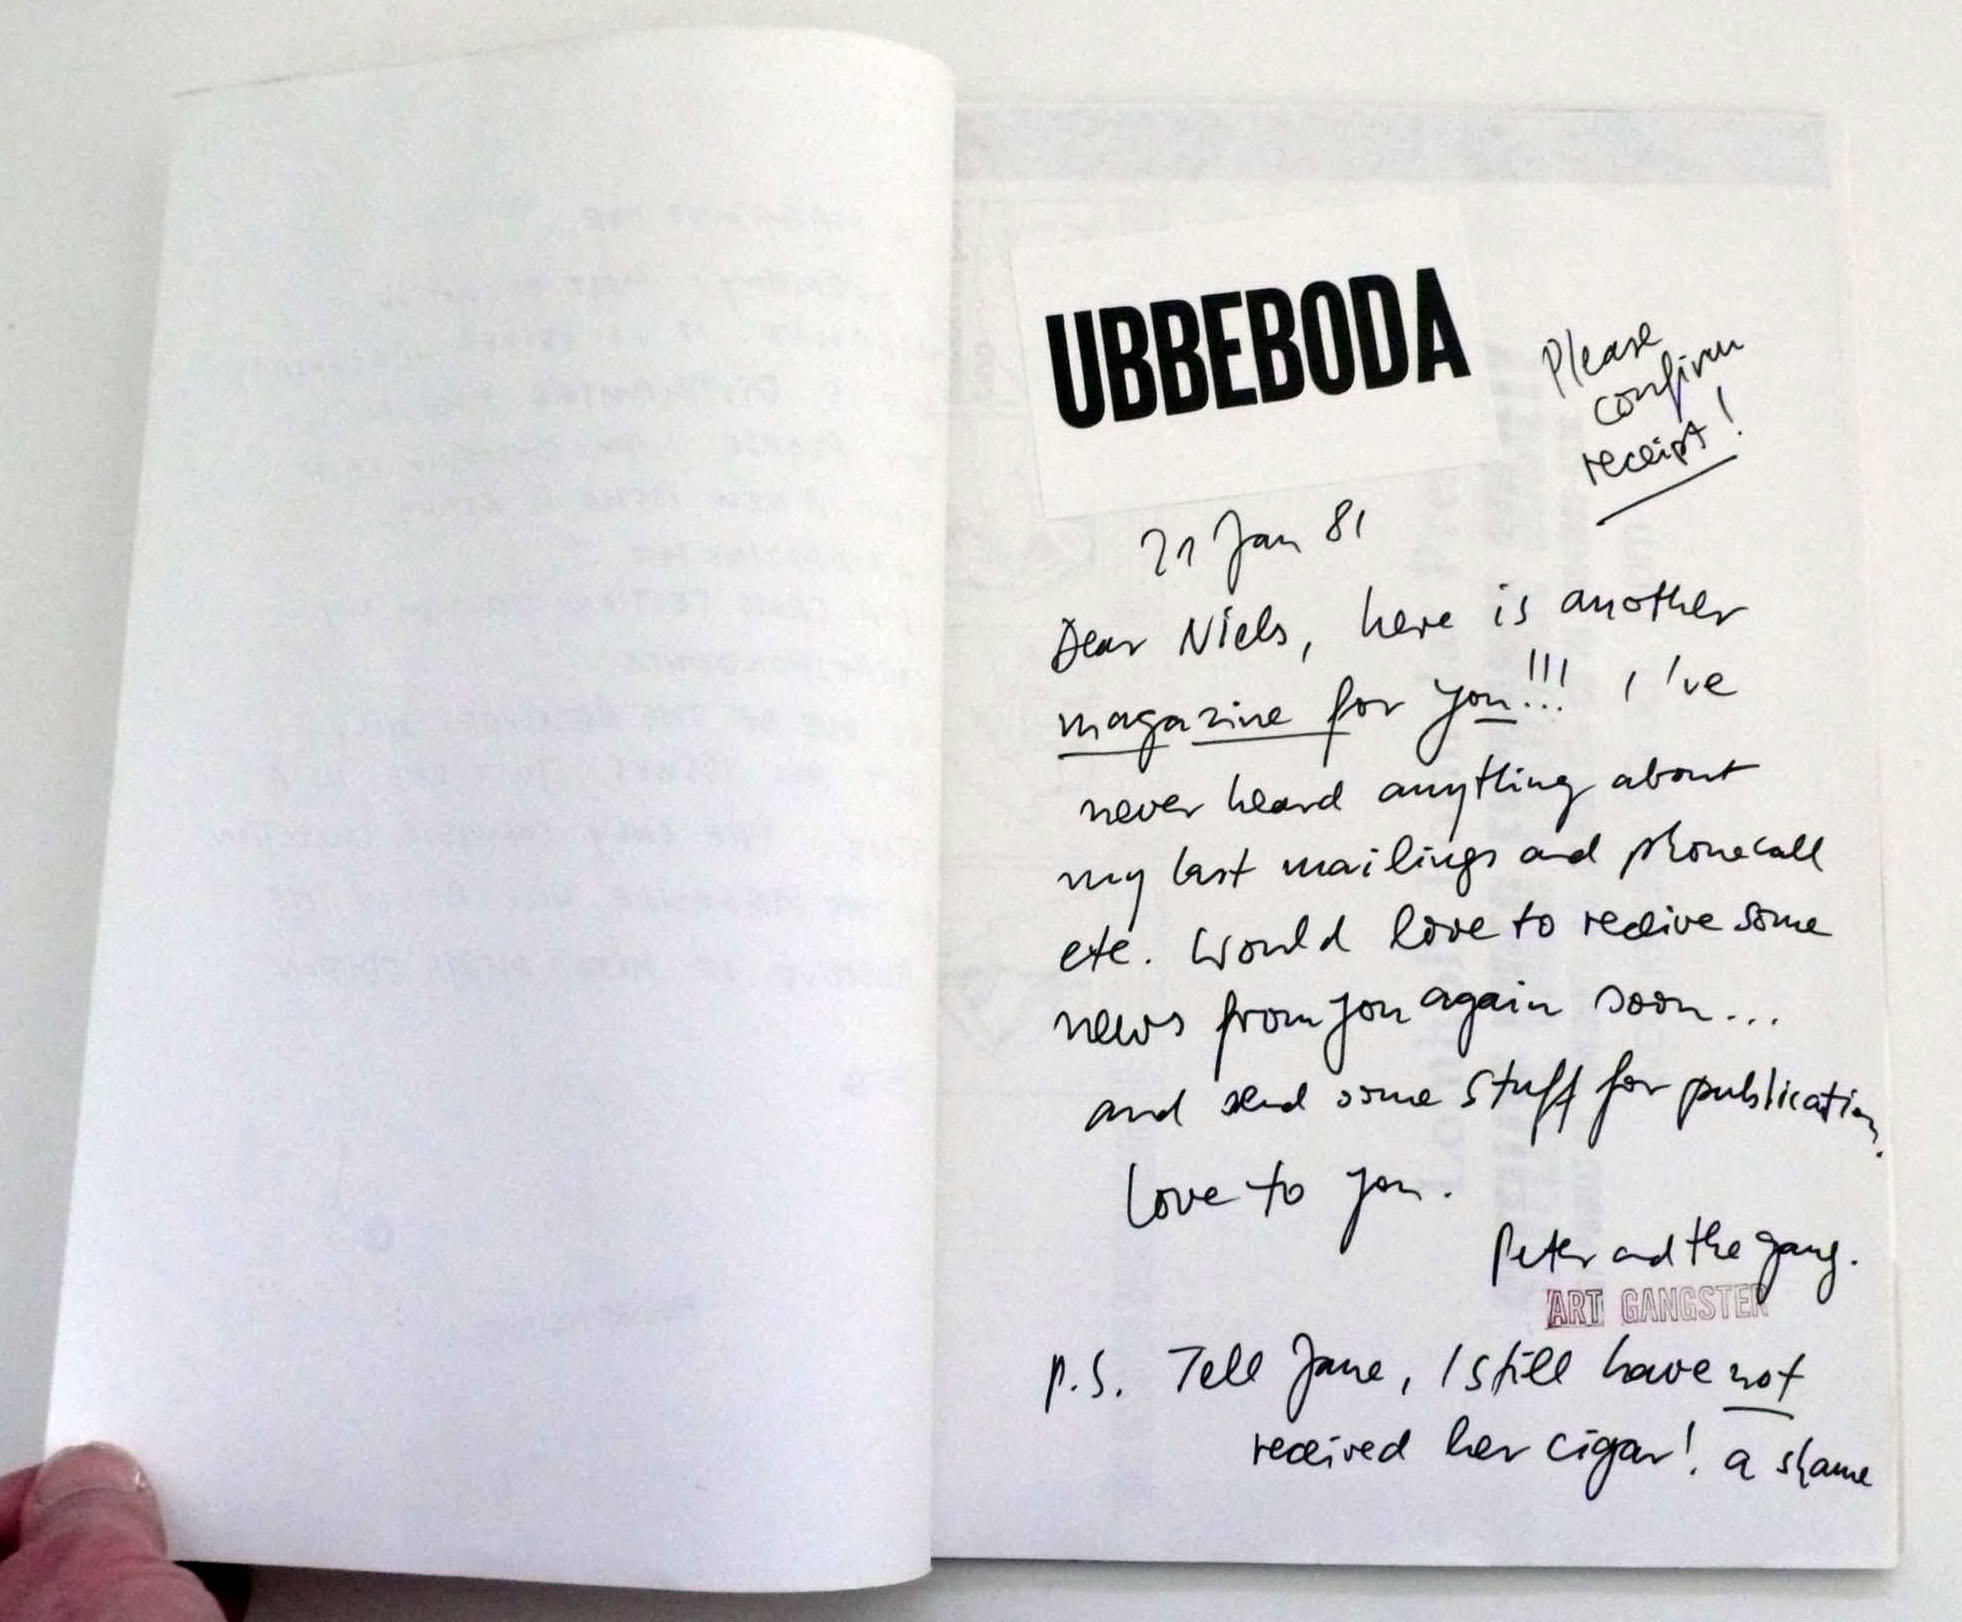 UBBEBODA
Please
confirm
receipt!
21 Jan 81
Dear Niels, here is another
magazine for you!!! I've
never heard anything about
my last mailings and phonecall
etc. Would love to receive some
news from you again soon...
and send some stuff for publication.
Love to you.
Peter and the gang.
ART GANGSTER
P.S. Tell Jane, I still have not
received her cigar! a shame